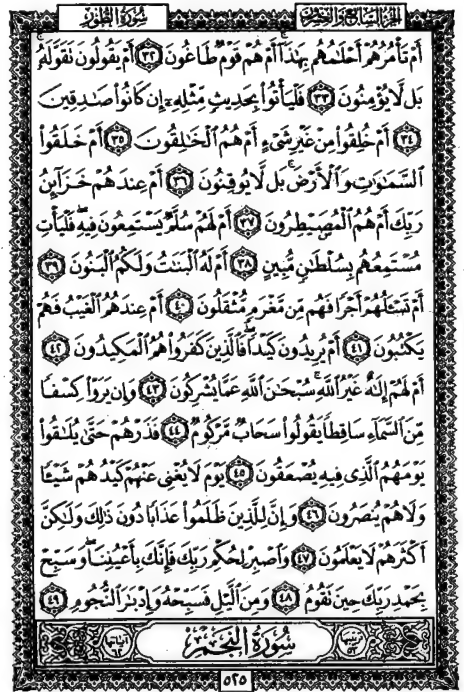 الجزء السابع والعشرون
سُورَةُ الطُّورِ
أَمْ تَأْمُرُهُمْ أَحْلَٰمُهُم بِهَٰذَآ أَمْ هُمْ قَوْمٌ طَاغُونَ ٣٢ أَمْ يَقُولُونَ تَقَوَّلَهُۥ
بَل لَّا يُؤْمِنُونَ ٣٣ فَلْيَأْتُوا۟ بِحَدِيثٍ مِّثْلِهِۦٓ إِن كَانُوا۟ صَٰدِقِينَ
٣٤ أَمْ خُلِقُوا۟ مِنْ غَيْرِ شَىْءٍ أَمْ هُمُ ٱلْخَٰلِقُونَ ٣٥ أَمْ خَلَقُوا۟
ٱلسَّمَٰوَٰتِ وَٱلْأَرْضَ ۚ بَل لَّا يُوقِنُونَ ٣٦ أَمْ عِندَهُمْ خَزَآئِنُ
رَبِّكَ أَمْ هُمُ ٱلْمُصَۣيْطِرُونَ ٣٧ أَمْ لَهُمْ سُلَّمٌ يَسْتَمِعُونَ فِيهِ ۖ فَلْيَأْتِ
مُسْتَمِعُهُم بِسُلْطَٰنٍ مُّبِينٍ ٣٨ أَمْ لَهُ ٱلْبَنَٰتُ وَلَكُمُ ٱلْبَنُونَ ٣٩
أَمْ تَسْـَٔلُهُمْ أَجْرًا فَهُم مِّن مَّغْرَمٍ مُّثْقَلُونَ ٤٠ أَمْ عِندَهُمُ ٱلْغَيْبُ فَهُمْ
يَكْتُبُونَ ٤١ أَمْ يُرِيدُونَ كَيْدًا ۖ فَٱلَّذِينَ كَفَرُوا۟ هُمُ ٱلْمَكِيدُونَ ٤٢
أَمْ لَهُمْ إِلَٰهٌ غَيْرُ ٱللَّهِ ۚ سُبْحَٰنَ ٱللَّهِ عَمَّا يُشْرِكُونَ ٤٣ وَإِن يَرَوْا۟ كِسْفًا
مِّنَ ٱلسَّمَآءِ سَاقِطًا يَقُولُوا۟ سَحَابٌ مَّرْكُومٌ ٤٤ فَذَرْهُمْ حَتَّىٰ يُلَٰقُوا۟
يَوْمَهُمُ ٱلَّذِى فِيهِ يُصْعَقُونَ ٤٥ يَوْمَ لَا يُغْنِى عَنْهُمْ كَيْدُهُمْ شَيْـًٔا
وَلَا هُمْ يُنصَرُونَ ٤٦ وَإِنَّ لِلَّذِينَ ظَلَمُوا۟ عَذَابًا دُونَ ذَٰلِكَ وَلَٰكِنَّ
أَكْثَرَهُمْ لَا يَعْلَمُونَ ٤٧ وَٱصْبِرْ لِحُكْمِ رَبِّكَ فَإِنَّكَ بِأَعْيُنِنَا ۖ وَسَبِّحْ
بِحَمْدِ رَبِّكَ حِينَ تَقُومُ ٤٨ وَمِنَ ٱلَّيْلِ فَسَبِّحْهُ وَإِدْبَٰرَ ٱلنُّجُومِ ٤٩
ترتيبها ٥٣ سُورَةُ النَّجْمِ آياتها ٦٢
٥٢٥